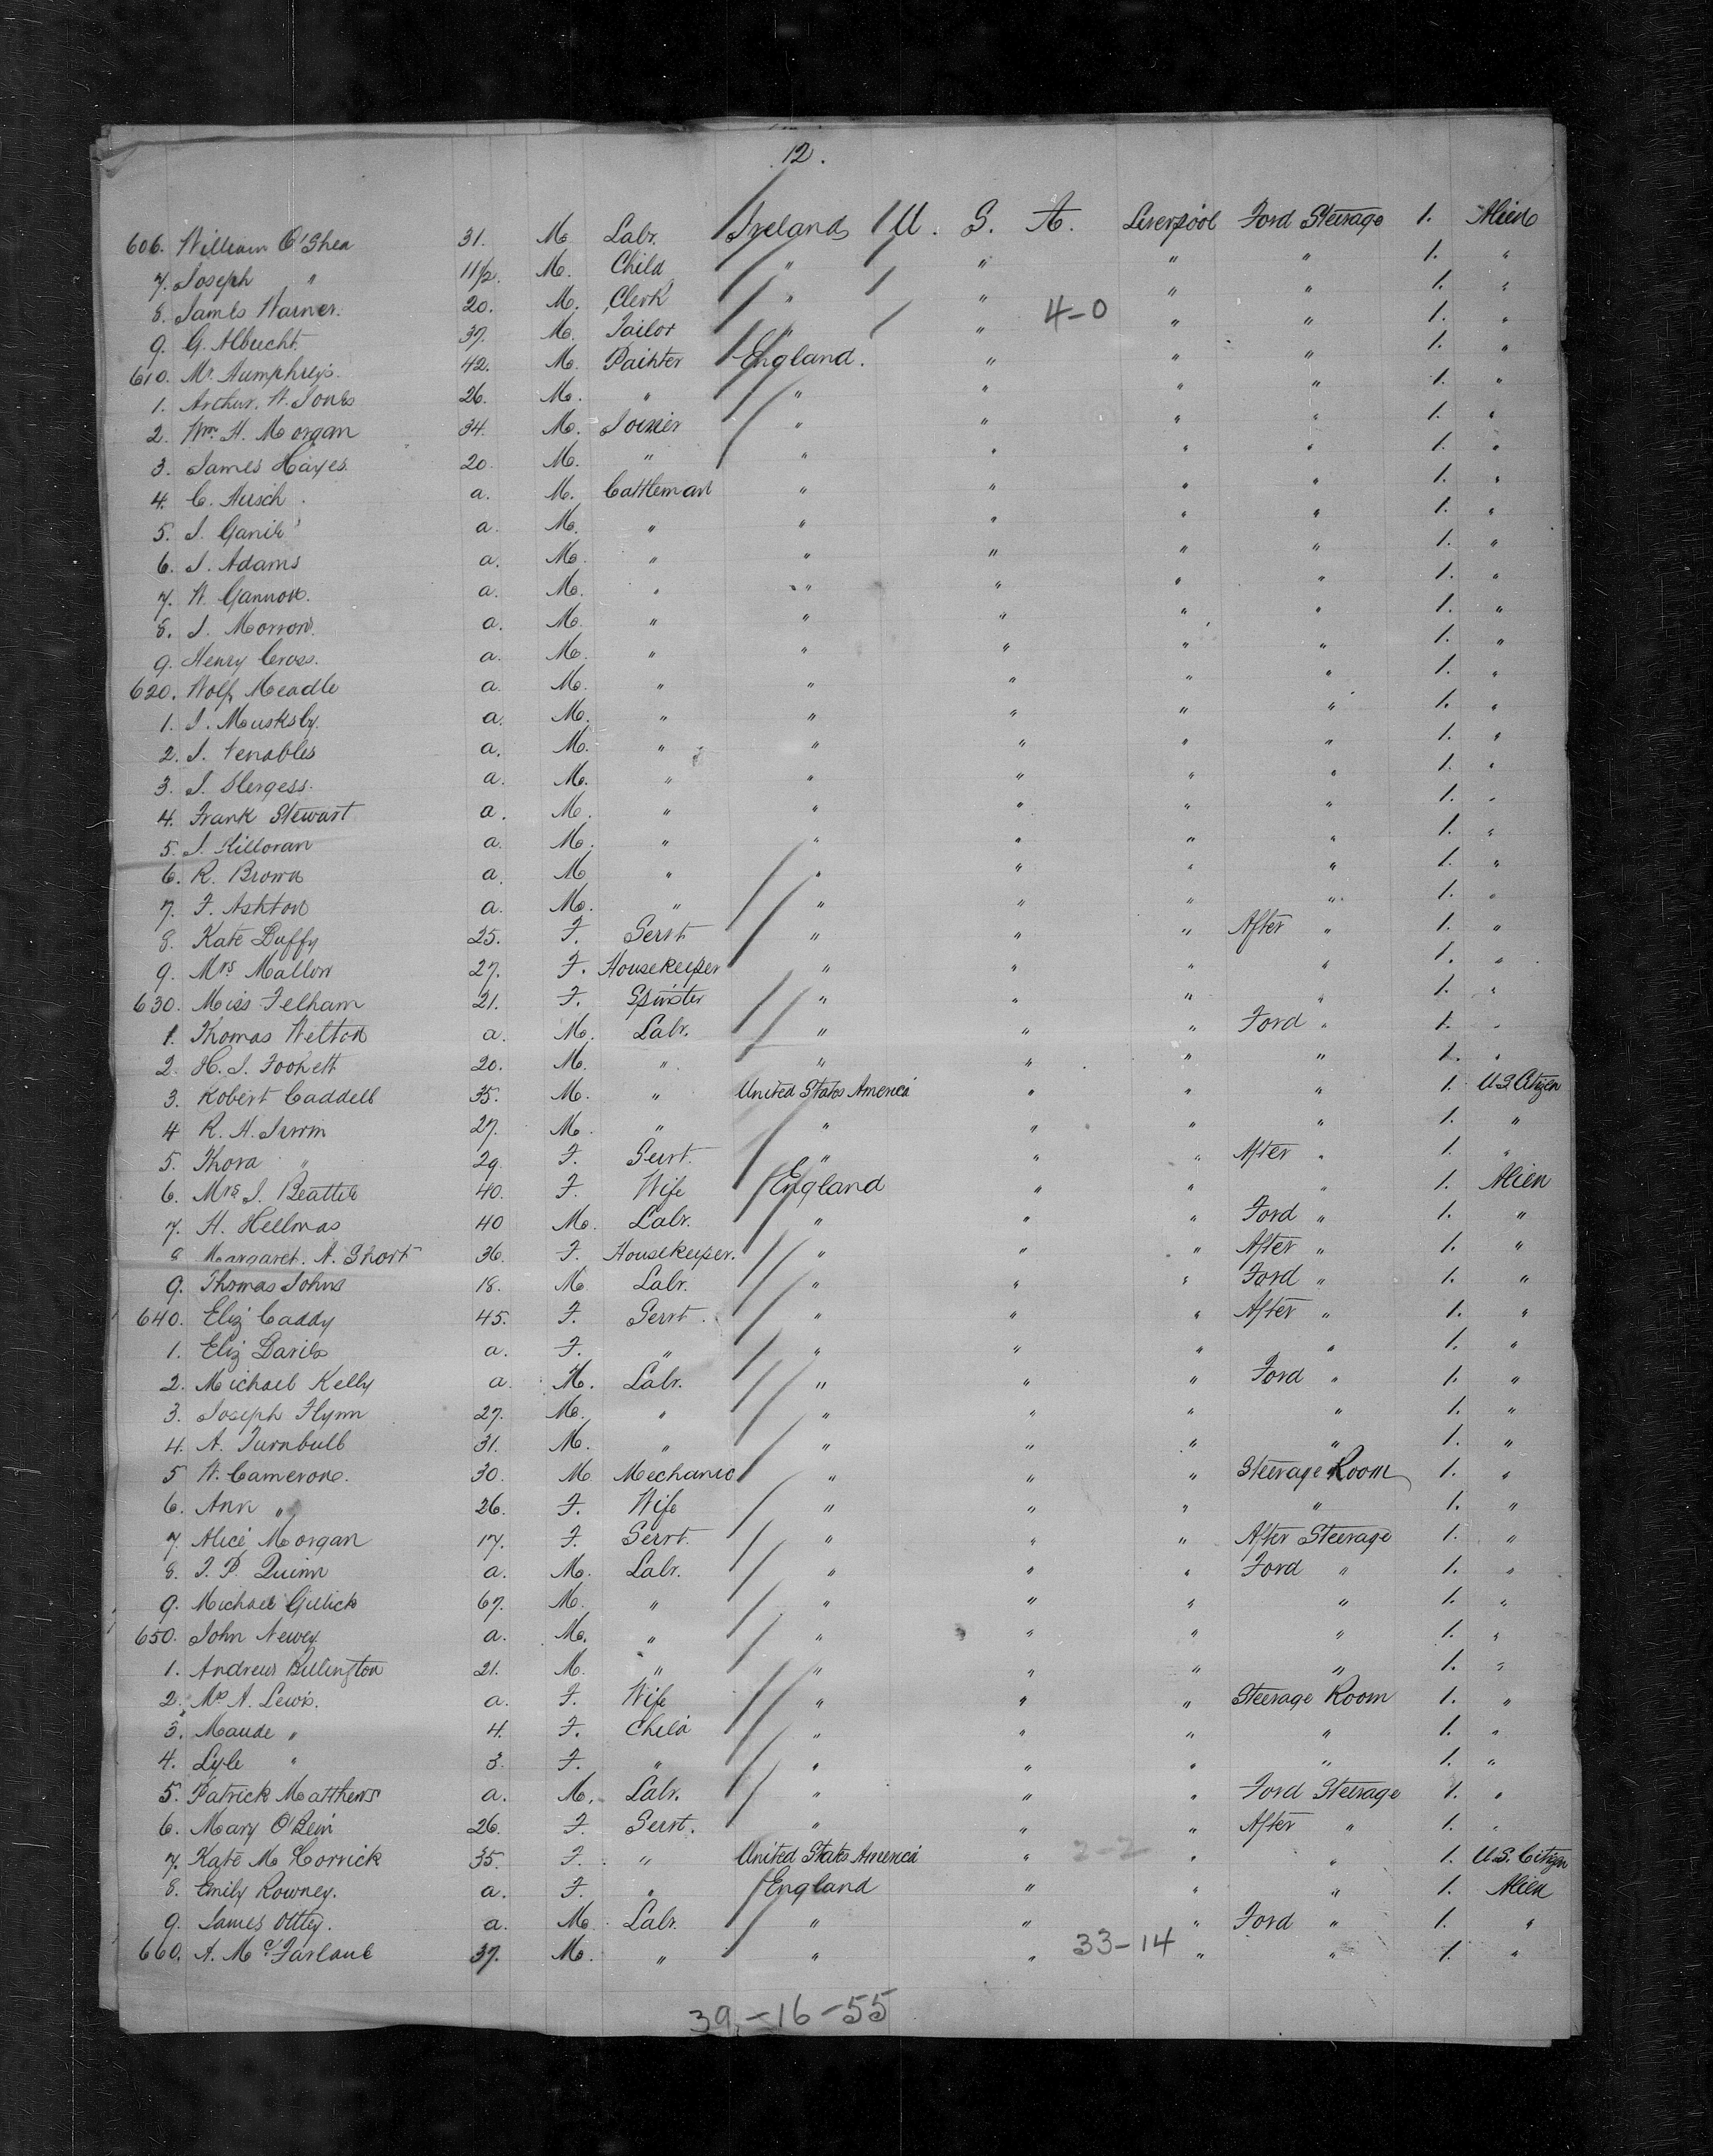 12.
606. William O'Shea 31. M Labr. Ireland U. S. A. Liverpool Ford Steerage 1. Alien
7. Joseph " 11/2. M. Child " " " " 1. "
8. James Warner. 20. M. Clerk " " " " 1. "
4-0
9. G. Albucht 37. M. Tailor " " " " 1. "
610. Mr. Humphreys. 42. M. Painter England. " " " 1. "
1. Arthur. W. Jones 26. M. " " " " " 1. "
2. Wm. H. Morgan 34. M. Joiner " " " " 1. "
3. James Hayes. 20. M. " " " " " 1. "
4. C. Hirsch. a. M. Cattleman " " " " 1. "
5. J. a. M. " " " " " 1. "
6. J. Adams a. M. " " " " " 1. "
7. W. Gannon. a. M. " " " " " 1. "
8. J. Morrow. a. M. " " " " " 1. "
9. Henry Cross. a. M. " " " " " 1. "
620. Wolf Meadle a. M. " " " " " 1. "
1. J. Musksby. a. M. " " " " " 1. "
2. J. Venables a. M. " " " " " 1. "
3. J. a. M. " " " " " 1. "
4. Frank Stewart a. M. " " " " " 1. "
5. J. Killoran a. M. " " " " " 1. "
6. R. Brown a. M " " " " " 1. "
7. F. Ashton a. M. " " " " " 1. "
8. Kate Duffy 25. F. Servt " " " After " 1. "
9. Mrs Mallon 27. F. Housekeeper " " " " 1. "
630. Miss Felham 21. F. Spinster " " " " 1. "
1. Thomas Welton a. M. Labr. " " " Ford " 1. "
2. H. J. Fookett 20. M. " " " " " 1. "
3. Robert Caddell 35. M. " United States America " " " 1. U.S. Citizen
4 R. H. Irwin 27. M. " " " " " 1. "
5. Thora " 29. F. Servt. " " " After " 1. "
6. Mrs J. Beattie 40. F. Wife England " " " 1. Alien
7. H. Hellmas 40 M. Labr. " " " Ford " 1. "
8 Margaret. A. Short 36. F. Housekeeper. " " " After " 1. "
9. Thomas Johns 18. M Labr. " " " Ford " 1. "
640. Eliz Caddy 45. F. Servt. " " " After " 1. "
1. Eliz Davies a. F. " " " " " 1. "
2. Michael Kelly a. M. Labr. " " " Ford " 1. "
3. Joseph Flynn 27. M. " " " " " 1. "
4. A. Turnbull 31. M. " " " " " 1. "
5 W. Cameron. 30. M Mechanic " " " Steerage Room 1. "
6. Ann " 26. F. Wife " " " " 1. "
7. Alice Morgan 17. F. Servt. " " " After Steerage 1. "
8. J. P. Quinn a. M. Labr. " " " Ford " 1. "
9. Michael Gillick 67. M. " " " " " 1. "
650. John Newey a. M. " " " " " 1. "
1. Andrew Billington 21. M. " " " " " 1. "
2. Mrs A. Lewis. a. F. Wife " " " Steerage Room 1. "
3. Maude " 4. F. Child " " " " 1. "
4. Lyle " 3. F. " " " " " 1. "
5. Patrick Matthews a. M. Labr. " " " Ford Steerage 1. "
6. Mary O'Bein 26. F. Servt. " " " After " 1. "
7. Kate McCorrick 35. F. " United States America " 2-2 " " 1. U.S. Citizen
8. Emily Rowney. a. F. " England " " " 1. Alien
9. James Ottey. a. M. Labr. " " " Ford " 1. "
660. A. McFarlane 37. M. " " " 33-14 " " 1. "
39-16-55